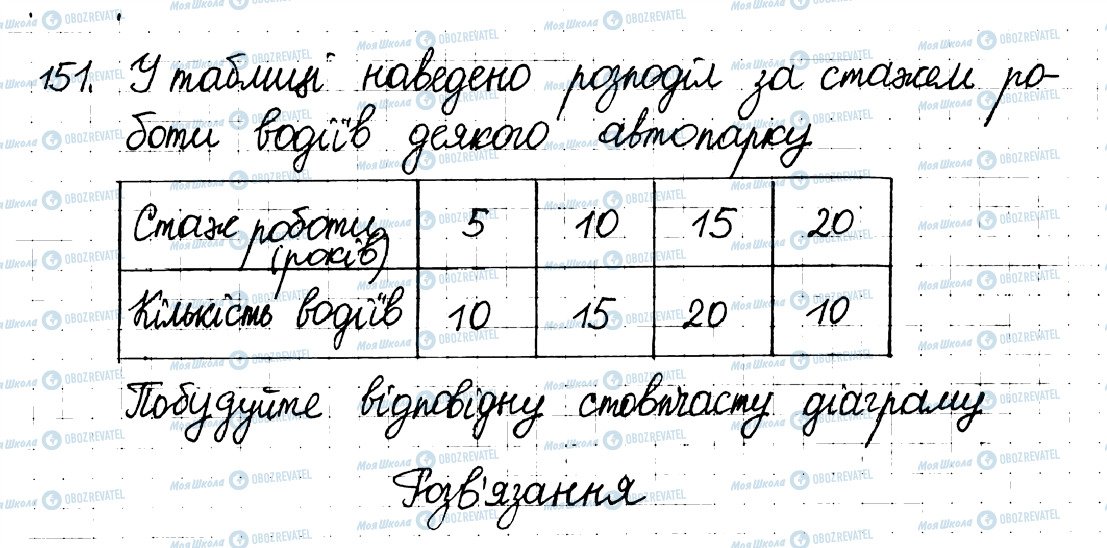 151. У таблиці наведено розподіл за стажем ро-
боти водіїв деякого автопарку
Стаж роботи (років) 5 10 15 20
Кількість водіїв 10 15 20 10
Побудуйте відповідну стовпчасту діаграму
Розв'язання